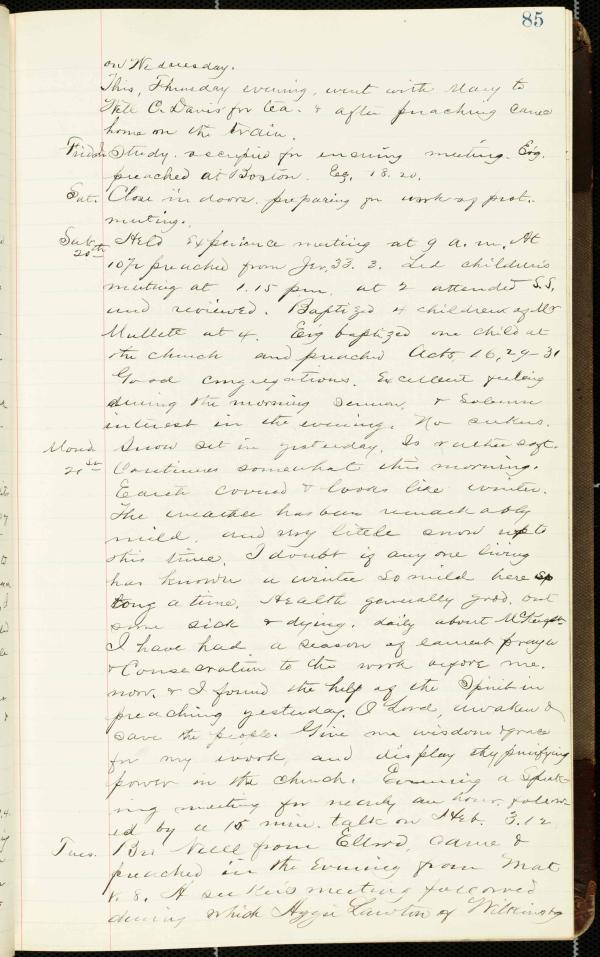 85
on Wednesday.
This, Thursday evening, went with Mary to
Will O. Davis for tea. & after preaching came
home on the train.
Friday Study. occupied for ensuing meeting. Evg.
preached at Boston. Eze. 18. 20.
Sat. Close in doors. preparing for work of prot.
meeting.
Sab. Held Experience meeting at 9 a.m. At
20th 10½ preached from Jer. 33. 3. Led children's
meeting at 1.15 p.m. at 2 attended S.S.
and reviewed. Baptized 4 children of Mr
Mullett at 4. Evg baptized one child at
the church and preached Acts, 16, 29-31
Good congregations. Excellent feeling
during the morning sermon, & solemn
interest in the evening. No seekers.
Mond. Snow set in yesterday. Is rather soft.
21st Continues somewhat this morning.
Earth covered & looks like winter.
The weather has been remarkably
mild, and very little snow up to
this time. I doubt if any one living
has known a winter so mild here so
long a time. Health generally good, but
some sick & dying. daily about
I have had a season of earnest prayer
& Consecration to the work before me.
now. & I found the help of the Spirit in
preaching yesterday. O Lord, awaken &
save the people. Give me wisdom & grace
for my work, and display thy purifying
power in the church. Evening a speak-
ing meeting for nearly an hour, follow-
ed by a 15 min. talk on Heb. 3.12
Tues. Bro from came &
preached in the Evening from Mat
V. 8. A seekers meeting followed
during which Lawton of